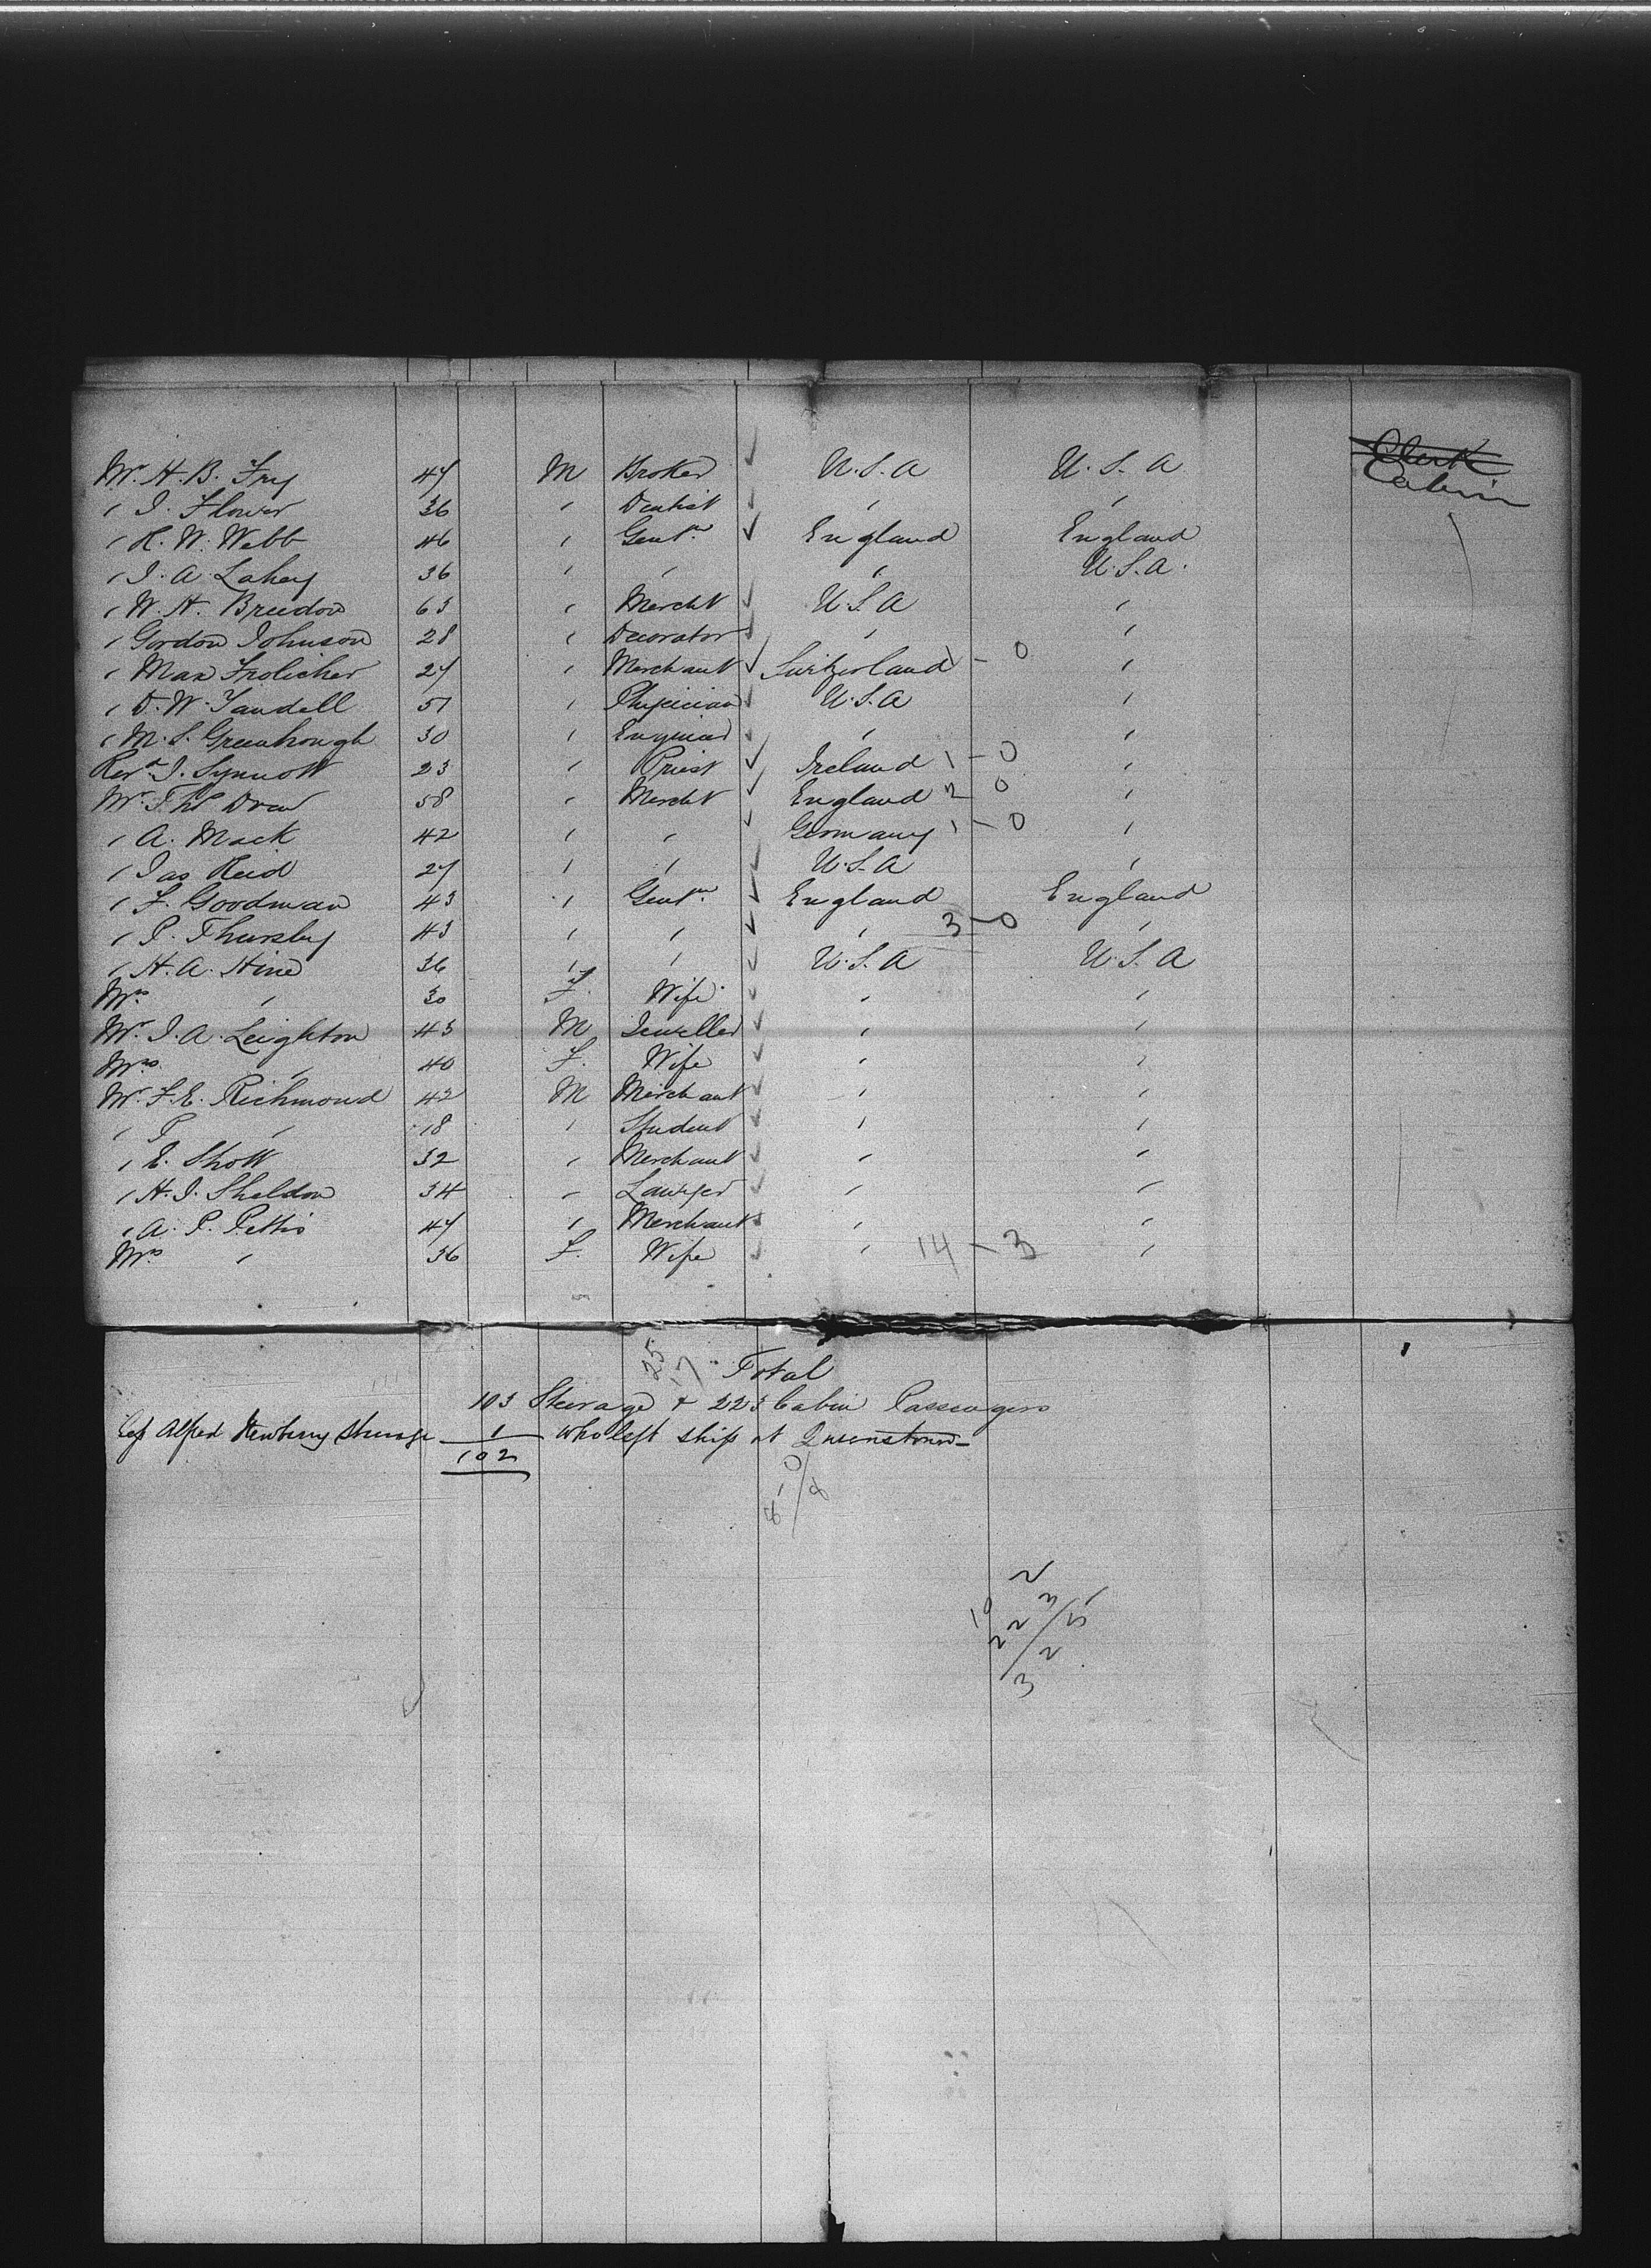 Mr. H. B. Fry 47 M Broker U.S.A U.S.A Clerk
" J. Flower 36 " Dentist " " Cabin
" R. W. Webb 46 " Gentn England England
" J. A. Lahey 36 " " " U.S.A.
" W. H. Breedon 63 " Mercht U.S.A "
" Gordon Johnson 28 " Decorator " "
" Max Frolicher 27 " Merchant Switzerland 1 - 0 "
" D. W. Yandell 51 " Physician U.S.A "
" M. S. Greenhough 30 " Engineer " "
Revd J. Synnott 23 " Priest Ireland 1 - 0 "
Mr. Ths Drew 58 " Mercht England 2 0 "
" A. Mack 42 " " Germany 1 - 0 "
" Jas Reid 27 " " U.S.A "
" F. Goodman 43 " Gentn England England
" P. Thursby 43 " " " 3 - 0 "
" H. A. Hine 36 " " U.S.A U.S.A
Mrs. " 30 F. Wife " "
Mr. J. A. Leighton 43 M Jeweller " "
Mrs. " 40 F. Wife " "
Mr. F. E. Richmond 42 M Merchant " "
" " 18 " Student " "
" E. Shott 32 " Merchant " "
" H. J. Sheldon 34 " Lawyer " "
" A. P. Pettis 47 " Merchant " "
Mrs. " 36 F. Wife " 14 - 3 "
25 17 Total
103 Steerage & 223 Cabin Passengers
Alfred Newberry Steerage 1 who left ship at Queenstown
102
8 - 0
8
10 2
22 3
3 2 5